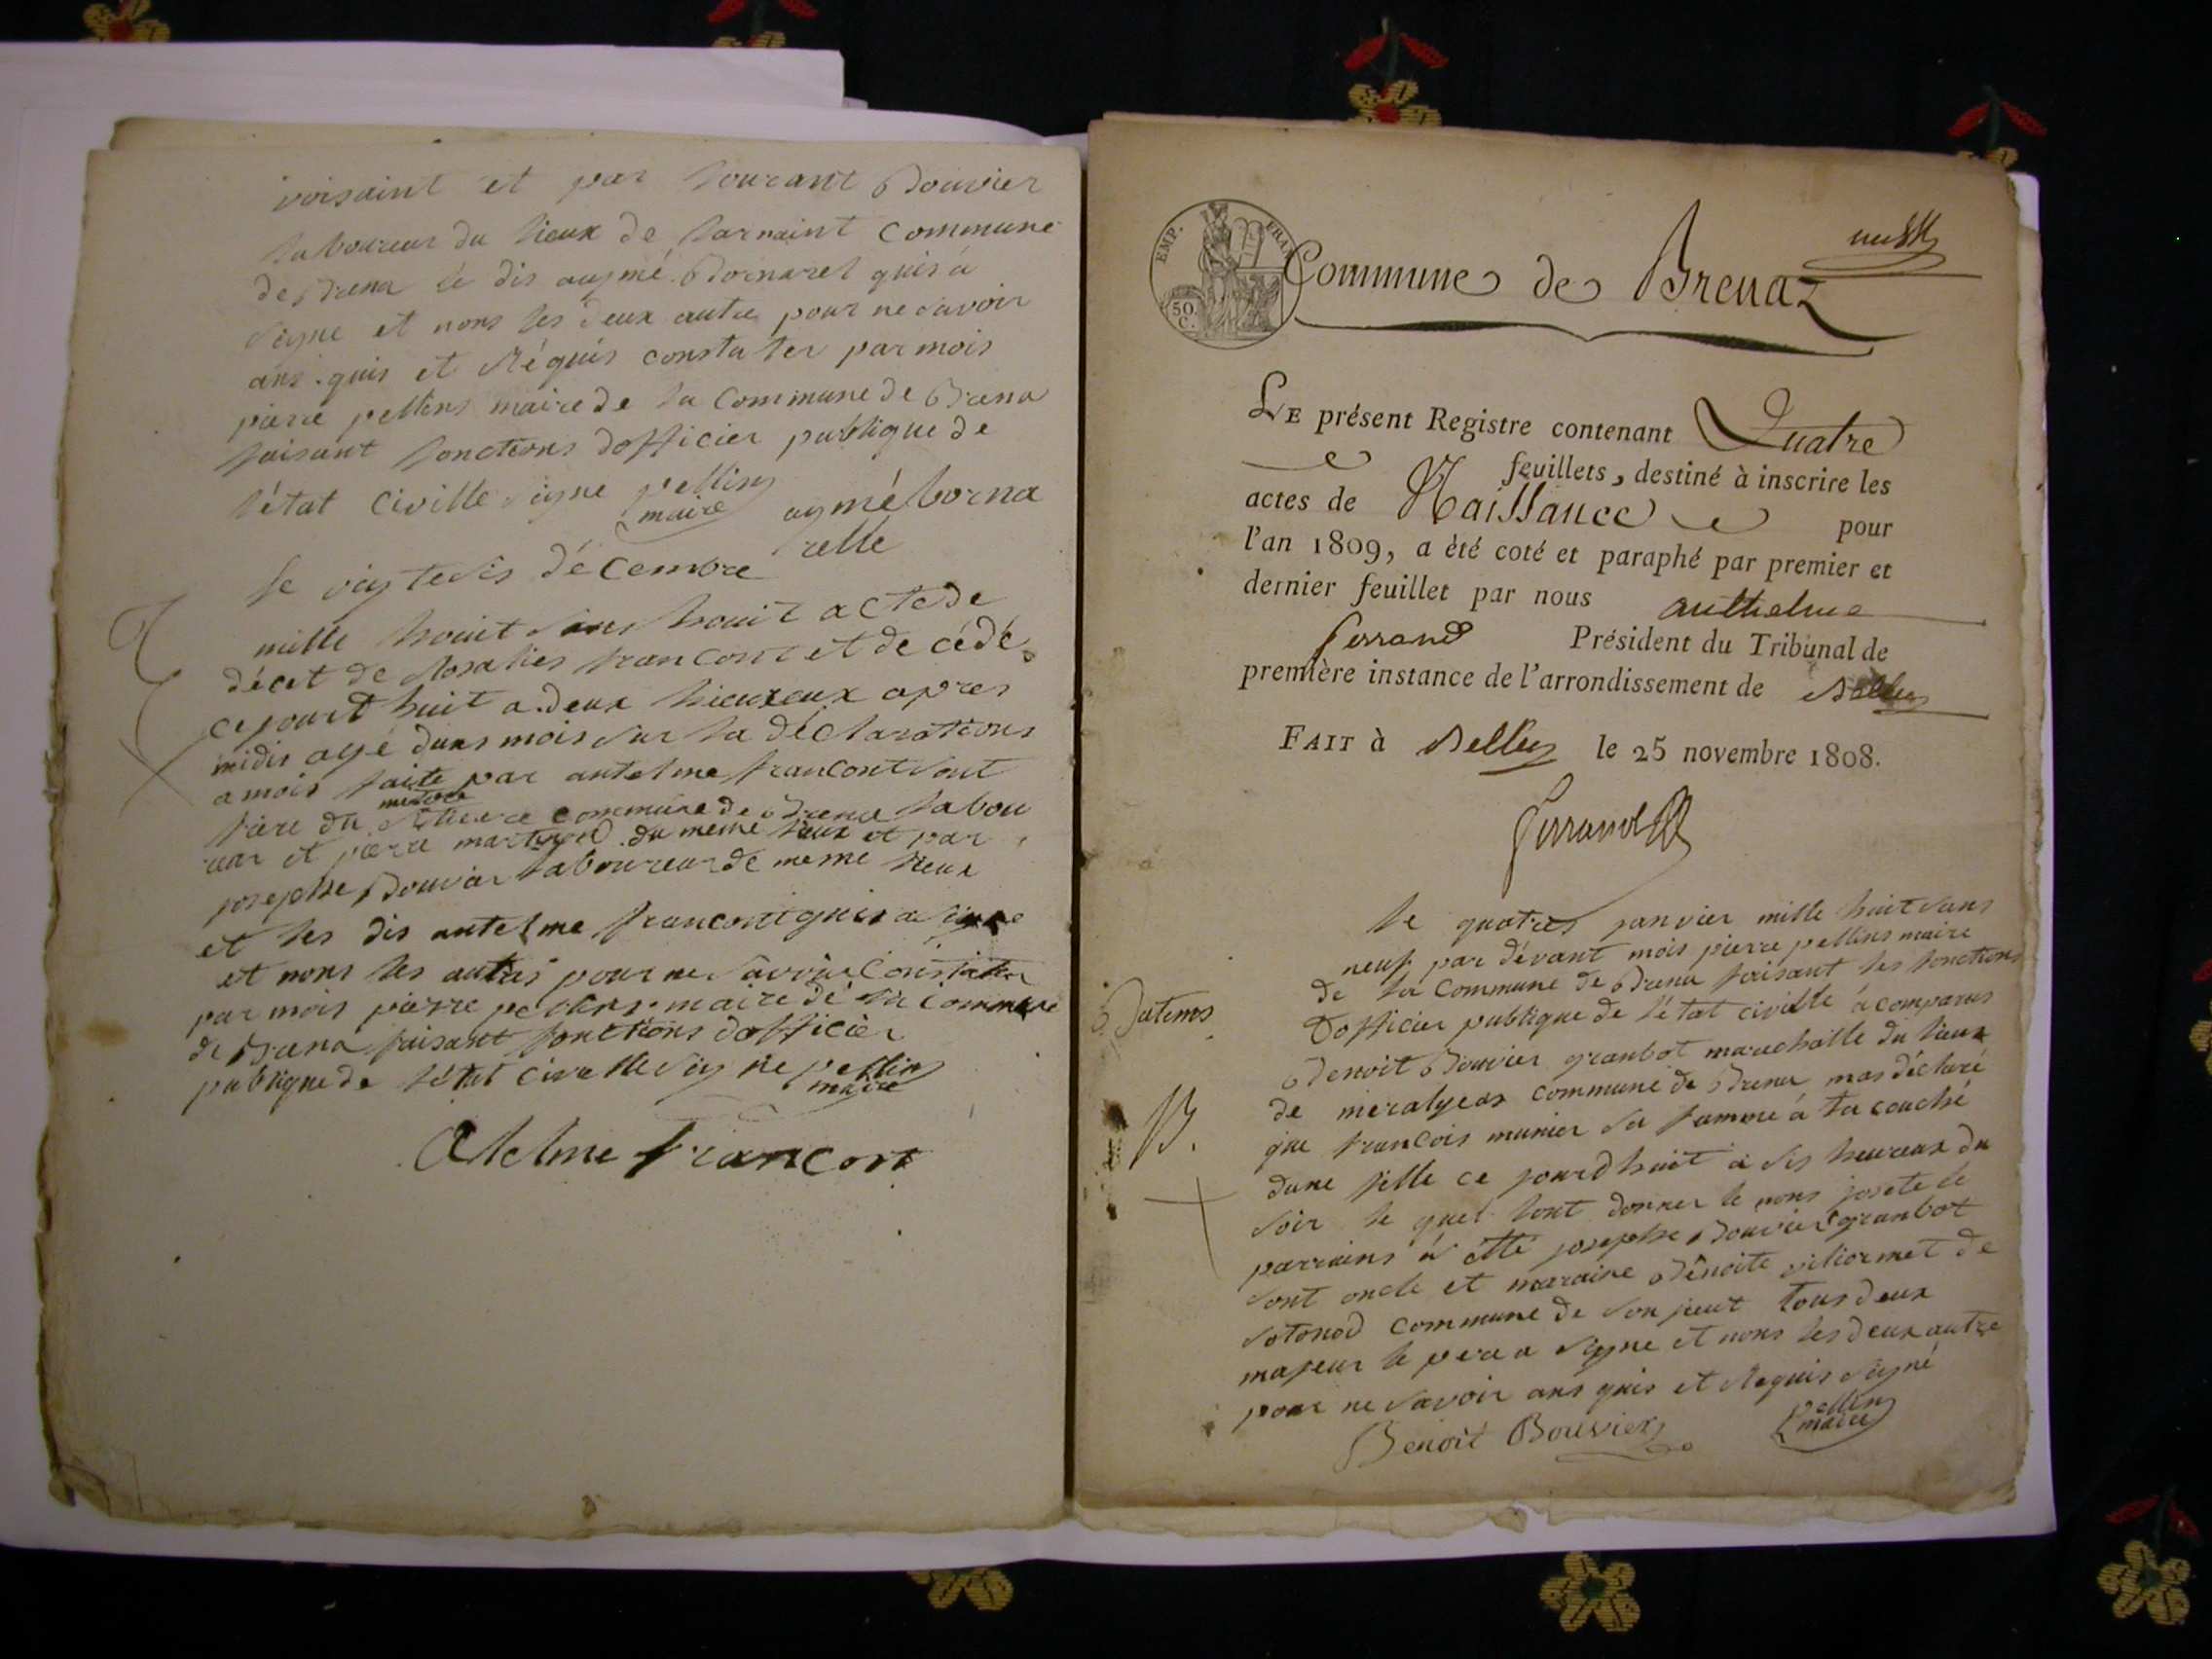 voisaint et par lourant Bouvier
laboureur du lieux de larnaint Commune
de Brena le dis aymé Bornarel quis a
signe et nons les deux autre pour ne savoir
ans quis et Réquis constater par mois
pierre pellins maire de la Commune de Brena
faisant fonctions dofficier publique de
létat Civille signe pellin
maire
aymé borna
relle
le vingtesis décembre
mille huit sans huit acte de
décet de Rosalies francont et de cédé
cejourt huit a deux hieureux apres
midis agé duns mois sur la déclarations
a mois faite par antelme francont sont
père du commune de Brena labou
rear et pierre martinod du meme lieux et par
josephe Bouvier laboureur de meme lieux
et les dis antelme francont quis a signe
et nons les autres pour ne savoir Constater
par mois pierre pellins maire de la Commune
de Brena faisant fonctions dofficier
publique de létat civille signe pellin
maire
Atelme francon
EMP. FRAN.
50. C.
Commune de Brenaz
LE présent Registre contenant Quatre
feuillets, destiné à inscrire les
actes de Naissance pour
l'an 1809, a été coté et paraphé par premier et
dernier feuillet par nous anthelme
ferrand Président du Tribunal de
première instance de l'arrondissement de Belley
FAIT à Belley le 25 novembre 1808.
ferrand
B.
le quatres janvier mille huit sans
neuf par dévant mois pierre pellins maire
de la Commune de Brena faisant les fonctions
dofficier publique de létat civille a comparus
Benoit Bouvier granbot marechalle du lieux
de meralyeas commune de Brena mas déclaré
que francois munier sa famme a la couché
dune fille ce jourdhuit a sis heureux du
soir le quel lont donner le nons josete le
parrains a étté josephe Bouvier granbot
sont oncle et marraine Bénoite viliermet de
sotonod commune de sonjeut tous deux
majeur le pere a signe et nons les deux autre
pour ne savoir ans quis et Requis signé
Benoit Bouvier
pellin
maire